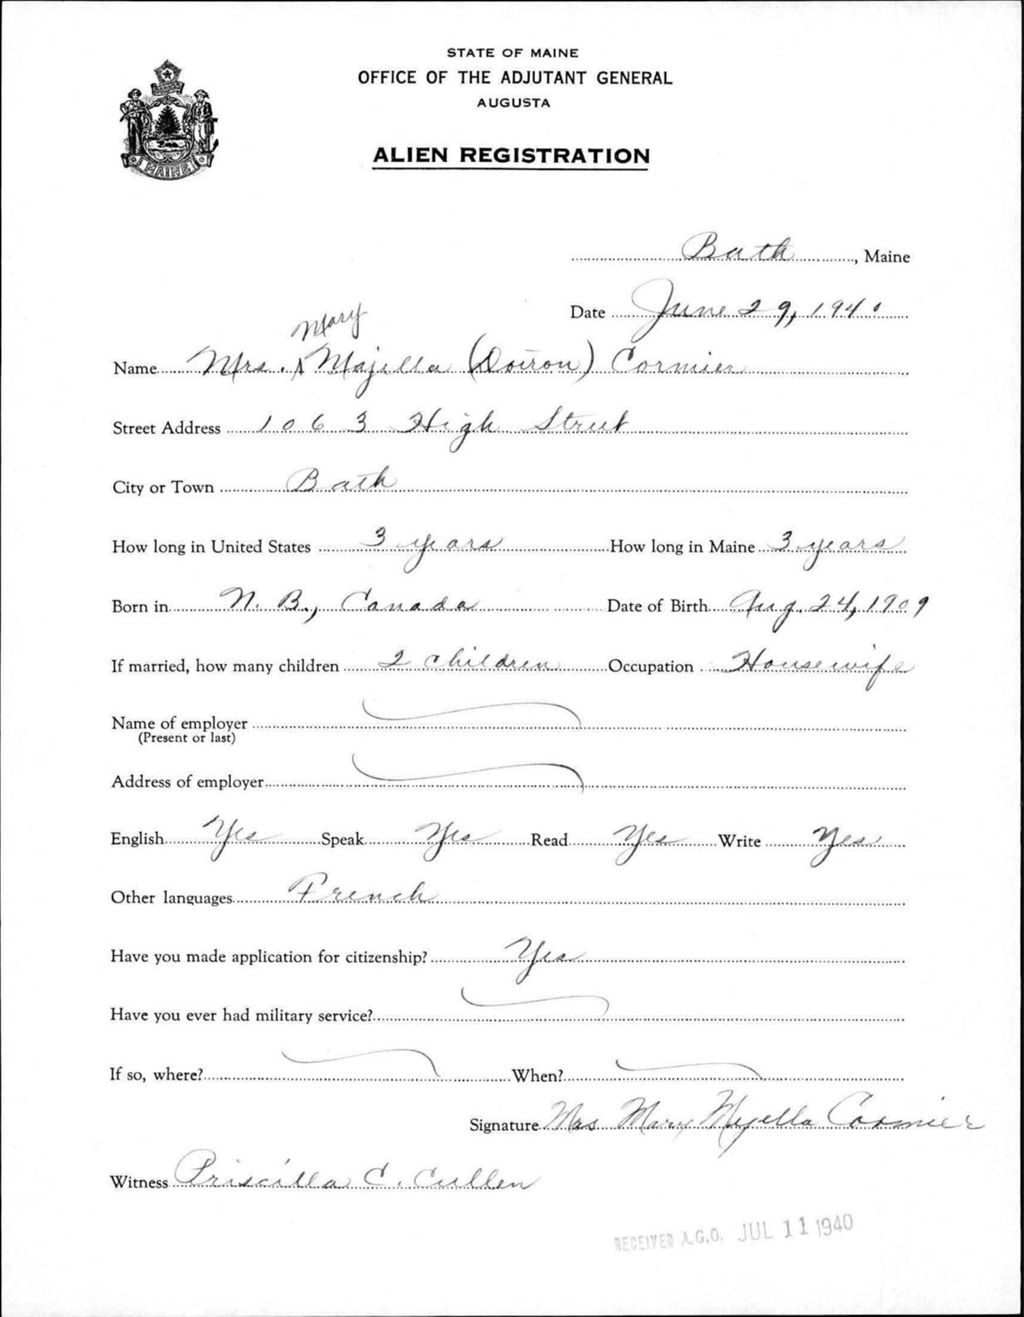 STATE OF MAINE
OFFICE OF THE ADJUTANT GENERAL
AUGUSTA
ALIEN REGISTRATION
MAINE
Bath, Maine
Date June 29, 1940
Mary
Name Mrs. Majella (Doiron) Cormier
Street Address 1063 High Street
City or Town Bath
How long in United States 3 years How long in Maine 3 years
Born in N. B., Canada Date of Birth Aug. 24, 1909
If married, how many children 2 children Occupation Housewife
Name of employer
(Present or last)
Address of employer
English Yes Speak Yes Read Yes Write Yes
Other languages French
Have you made application for citizenship? Yes
Have you ever had military service?
If so, where? When?
Signature Mrs Mary Majella Cormier
Witness Priscilla C. Cullen
RECEIVED A.G.O. JUL 11 1940